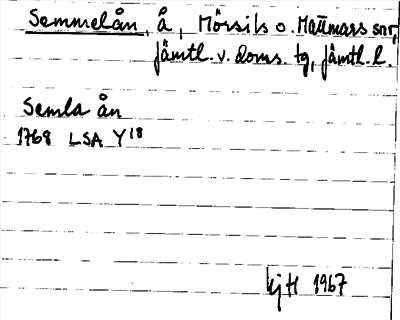 Semmelån, å, Mörsils o. Mattmars snr,
Jämtl. v. doms. tg, Jämtl. l.
Semla ån
1768 LSA Y18
kjH 1967